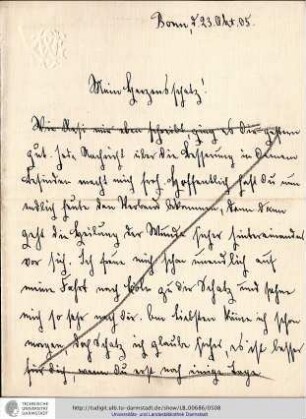 Bonn, d 23. Okt. 05.
Mein Herzensschatz!
Wie Resi mir eben schreibt, ging es Dir gestern
gut. Jede Nachricht über die Besserung in Deinem
Befinden macht mich froh. Hoffentlich hast Du nun
endlich heute den Verband bekommen, denn dann
geht die Heilung der Wunde sehr hintereinander
vor sich. Ich freue mich schon unendlich auf
meine Fahrt nach Köln zu Dir Schatz und sehne
mich so sehr nach Dir. Am liebsten käme ich schon
morgen, doch Schatz ich glaube sicher, es ist besser
für Dich, wenn Du erst noch einige Tage
TECHNISCHE
UNIVERSITÄT
DARMSTADT
http://tudigit.ulb.tu-darmstadt.de/show/LB_00686/0508
Universitäts- und Landesbibliothek Darmstadt